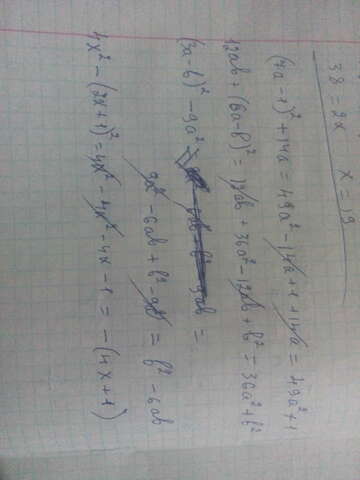 38 = 2x x = 19
(7a - 1)² + 14a = 49a² - 14a + 1 + 14a = 49a² + 1
12ab + (6a - b)² = 12ab + 36a² - 12ab + b² = 36a² + b²
(3a - b)² - 9a² =
9a² - 6ab + b² - 9a² = b² - 6ab
4x² - (2x + 1)² = 4x² - 4x² - 4x - 1 = - (4x + 1)